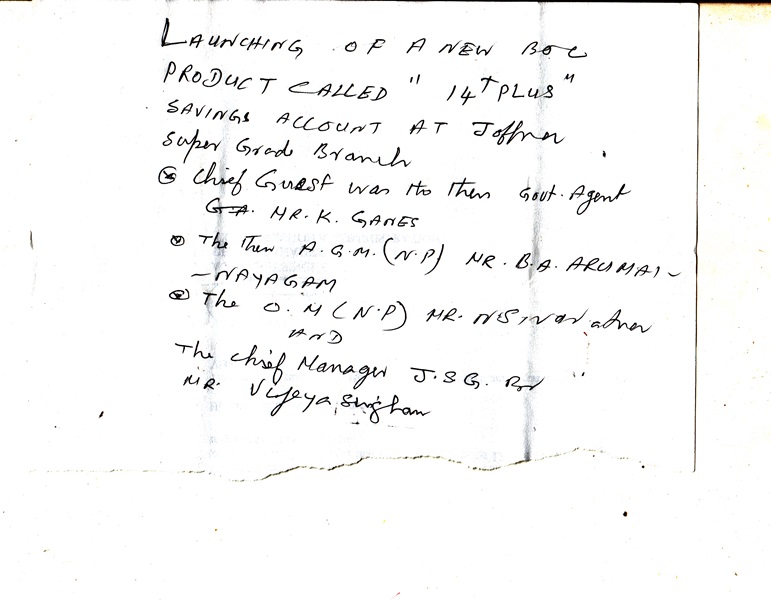 LAUNCHING OF A NEW BOC
PRODUCT CALLED " 14+PLUS"
SAVINGS ACCOUNT AT Jaffna
Super Grade Branch
Chief Guest was the then Govt. Agent
G.A. MR. K. GANES
The Then A.G.M. (N.P) MR. B.A. ARUMAI-
-NAYAGAM
The O.M (N.P) MR.
AND
The Chief Manager J.S.G. Br
MR. Vijeyasingham